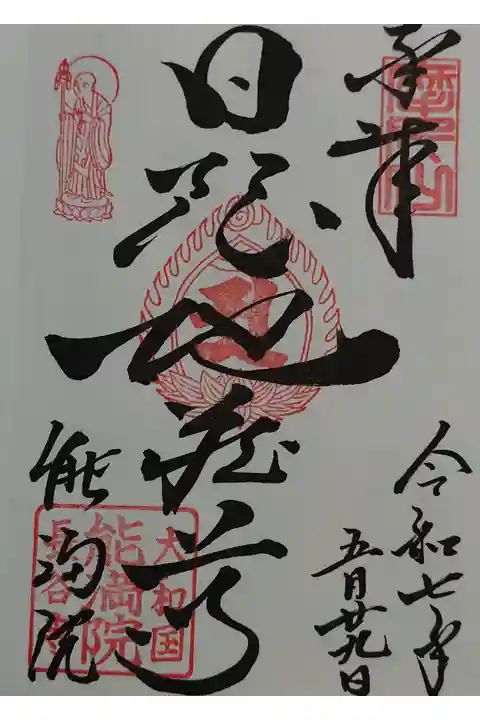 奉拝
日限地蔵尊
能満院
令和七年
五月廿九日
大和国
能満院
長谷寺